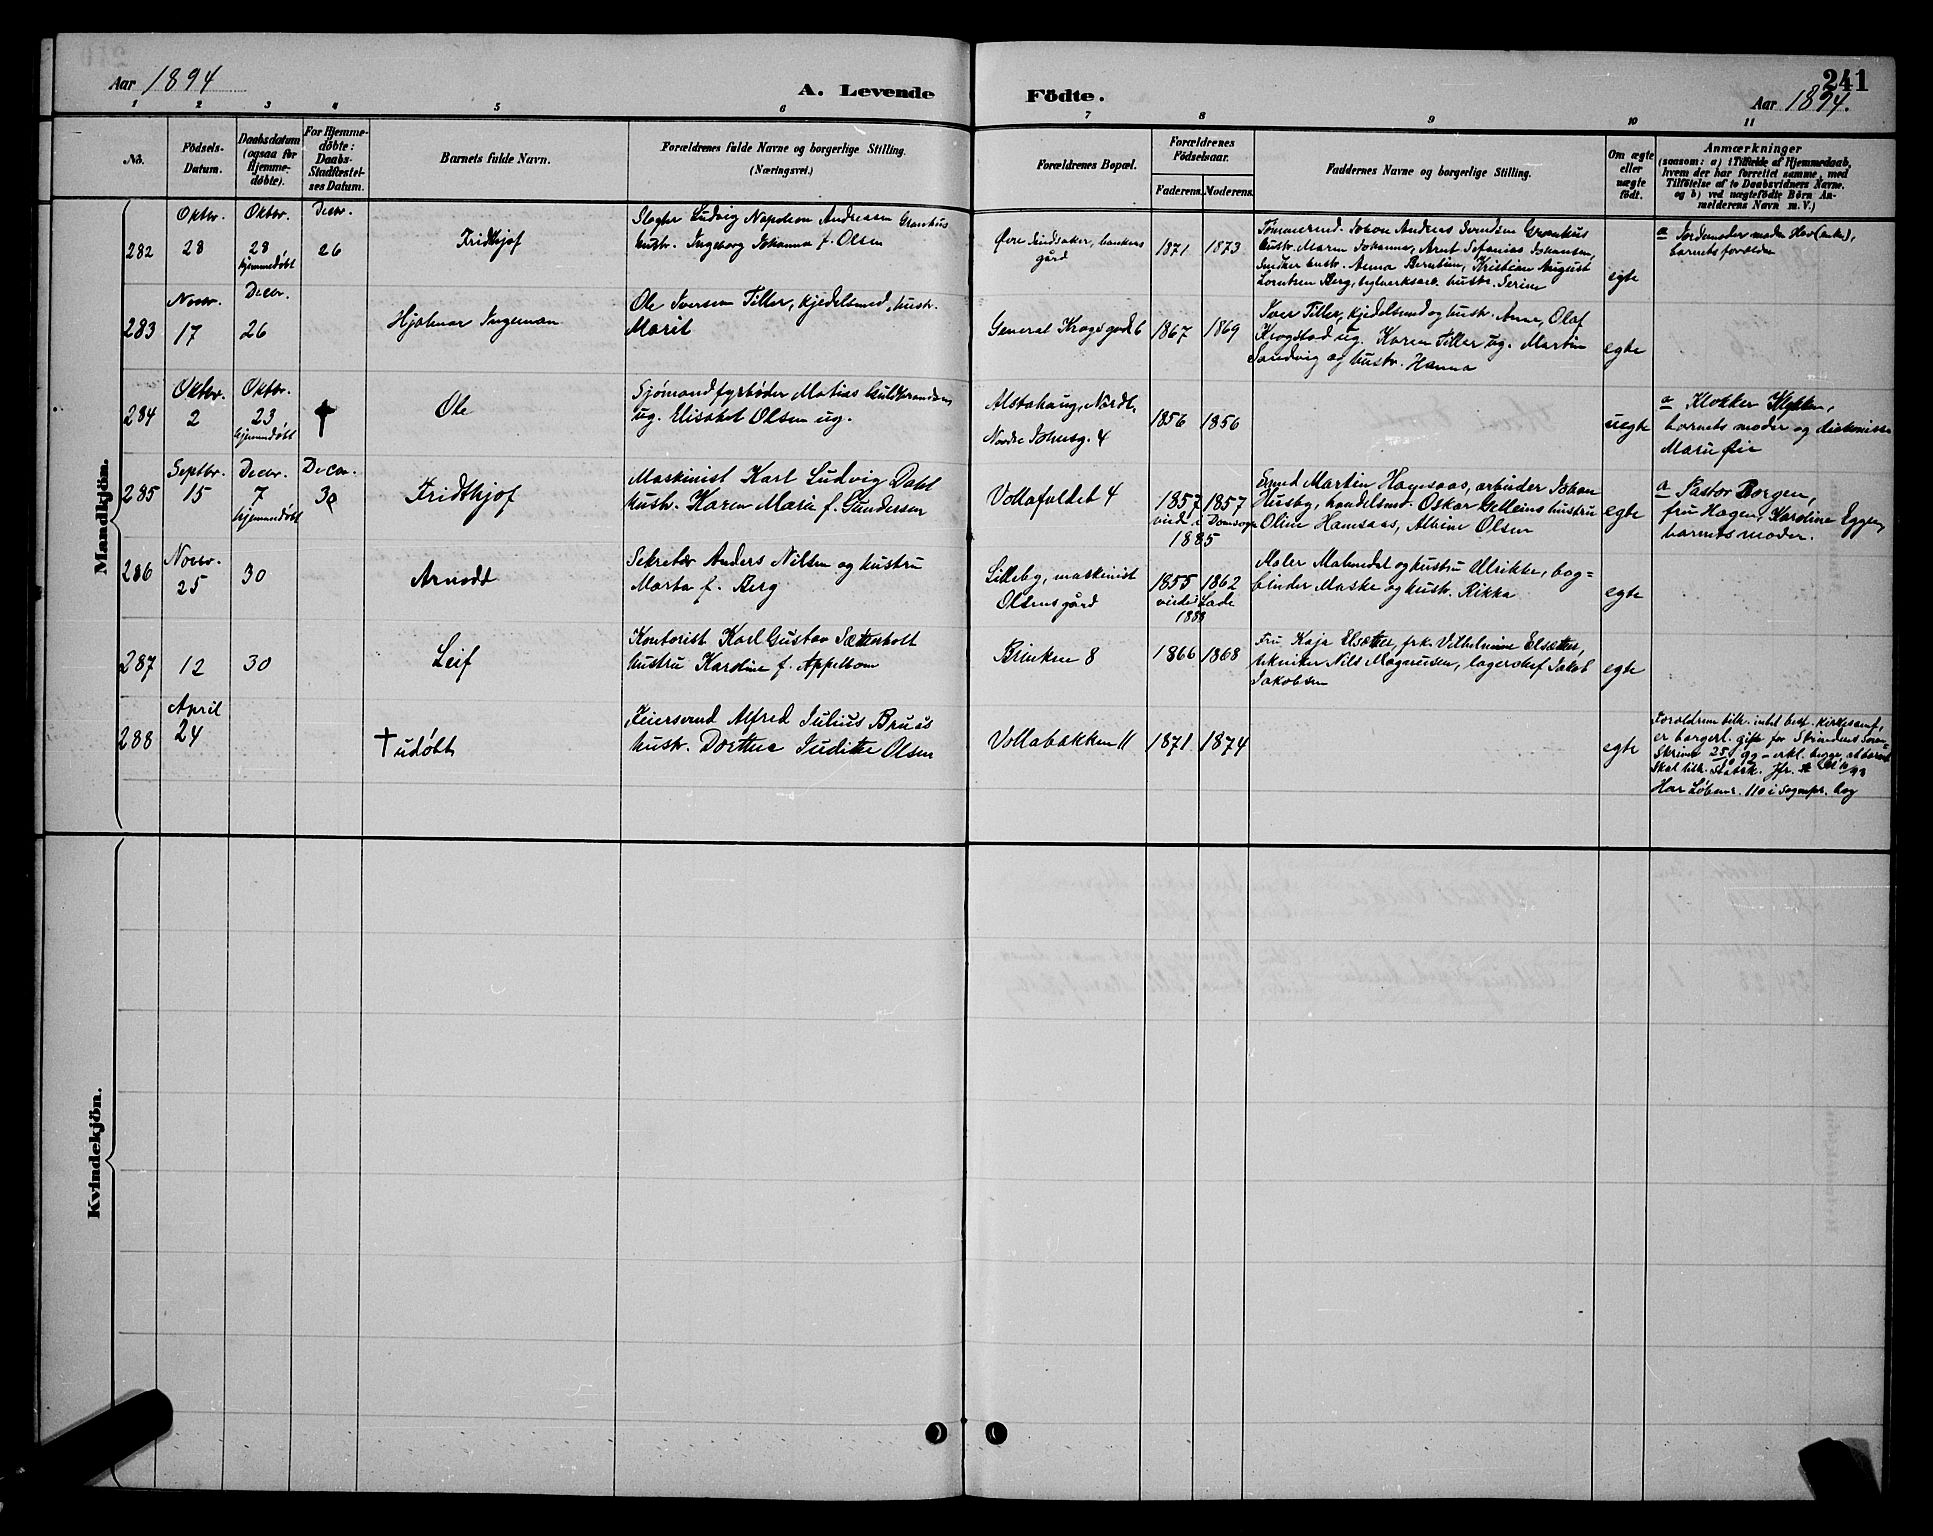 241
Aar 1894
A. Levende Födte.
Aar 1894.
1 2 3 4 5 6 7 8 9 10 11
No.
Födsels-
Datum.
Daabsdatum
(ogsaa for
Hjemme-
döbte).
For Hjemme-
döbte:
Daabs-
Stadfæstel-
ses Datum.
Barnets fulde Navn.
Forældrenes fulde Navne og borgerlige Stilling.
(Næringsvei.)
Forældrenes Bopæl.
Forældrenes
Födselsaar.
Faderens. Moderens.
Faddernes Navne og borgerlige Stilling.
Om ægte
eller
uægte
födt.
Anmærkninger
(saasom: a) i Tilfælde af Hjemmedaab,
hvem der har forrettet samme, med
Tilföielse af to Daabsvidners Navne.
og b) ved uægtefödte Börn An-
melderens Navn m. V.)
Mandkjön.
282
Oktbr.
28
Oktbr.
28
hjemmedøbt
Decbr.
26
Fridthjof
Ludvig Napoleon Andreassen Granhus
hustr. Ingeborg Johanna f. Olsen
Øvre bankers
gård
1871 1873
Tømmermd. Johan Andreas Svendsen Granhus
hustr. Maren Johanna, Arnt Johansen,
Snedker hustr. Anna Kristian August
Lorntsen Berg, hustr. Serine
egte
a Jordemoder
barnets forældre
283
Novbr.
17
Decbr.
26
Hjalmar Ingeman
Ole Iversen Tiller, kjedelsmed, hustr.
Marit
General Krogs gade 6
1867 1869
Iver Tiller, kjedelsmed og hustr. Anne, Olaf
Krogstad ug. Karen Tiller ug. Martin
Sandvig og hustr. Hanna
egte
284
Oktbr.
2
Oktbr.
23
hjemmedøbt
†
Ole
Sjømand fyrbøder Matias
ug. Elisabet Olsen ug.
Alstahaug, Nordl.
Nordre 4
1856 1856
uegte
a Klokker
barnets moder og diakonisse
Marie Øie
285
Septbr.
15
Decbr.
7
hjemmedøbt
Decbr.
30
Fridthjof
Maskinist Karl Ludvig Dahl
hustr. Karen Marie f. Gundersen
Vollafaldet 4
1857 1857
viede i Domsogn
1885
Martin Hagesaas, arbeider Johan
Husby, handelsmd. Oskar hustru
Oline Hansaas, Albine Olsen
egte
a Pastor Borgen,
fru Hagen, Karoline Eggen,
barnets moder.
286
Novbr.
25
30
Arnodt
Sekretær Anders Nilsen og hustru
Marta f. Berg
Lilleby, maskinist
Olsens gård
1855 1862
viede Lade
1888
Maler og hustru Ulrikke, bog=
binder Maske og hustr. Rikka
egte
287
12
30
Leif
Kontorist Karl Gustav Sættenholt
hustru Karoline f. Appelbom
Brinken 8
1866 1868
Fru Kaja Elsætter, frk. Vilhelmine Elsætter,
tekniker Nils Magnusen, lagerchef Jakob
Jakobsen
egte
288
April
24
† udøbt
Feiersvend Alfred Julius Bruus
hustr. Dorthea Judithe Olsen
Vollabakken 11
1871 1874
egte
Forældrene tilh. intet best. kirkesamf.,
er borgerl. gifte for Strindens Soren-
skriver 25/10 92 - erkl. begge at barnet
skal tilh. Statsk. Jfr.
Har Løbenr. 110 i Sognepr. bog
Kvindekjön.